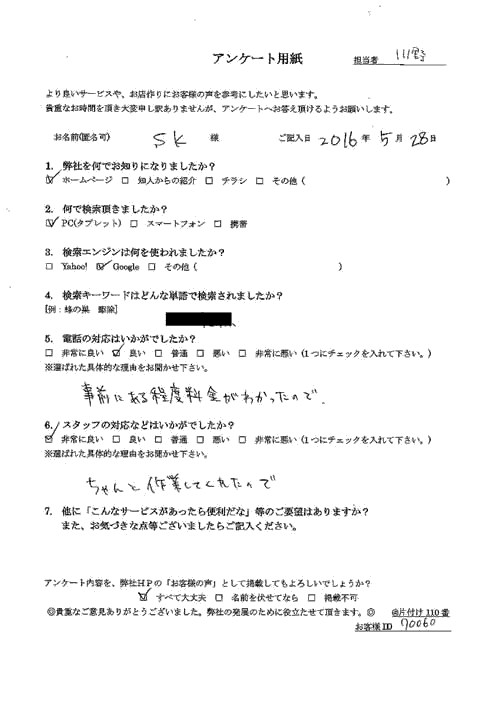 アンケート用紙
担当者 川野
より良いサービスや、お店作りにお客様の声を参考にしたいと思います。
貴重なお時間を頂き大変申し訳ありませんが、アンケートへお答え頂けるようお願いします。
お名前(匿名可) SK 様 ご記入日 2016年 5月 28日
1. 弊社を何でお知りになりましたか?
☑ ホームページ □ 知人からの紹介 □ チラシ □ その他 ( )
2. 何で検索頂きましたか?
☑ PC(タブレット) □ スマートフォン □ 携帯
3. 検索エンジンは何を使われましたか?
□ Yahoo! ☑ Google □ その他 ( )
4. 検索キーワードはどんな単語で検索されましたか?
[例:蜂の巣 駆除]
5. 電話の対応はいかがでしたか?
□ 非常に良い ☑ 良い □ 普通 □ 悪い □ 非常に悪い (1つにチェックを入れて下さい。)
※選ばれた具体的な理由をお聞かせ下さい。
事前にある程度料金がわかったので.
6. スタッフの対応などはいかがでしたか?
☑ 非常に良い □ 良い □ 普通 □ 悪い □ 非常に悪い (1つにチェックを入れて下さい。)
※選ばれた具体的な理由をお聞かせ下さい。
ちゃんと作業してくれたので
7. 他に「こんなサービスがあったら便利だな」等のご要望はありますか?
また、お気づきな点等ございましたらご記入ください。
アンケート内容を、弊社HPの「お客様の声」として掲載してもよろしいでしょうか?
☑ すべて大丈夫 □ 名前を伏せてなら □ 掲載不可
◎貴重なご意見ありがとうございました。弊社の発展のために役立たせて頂きます。◎ @片付け110番
お客様ID 70060